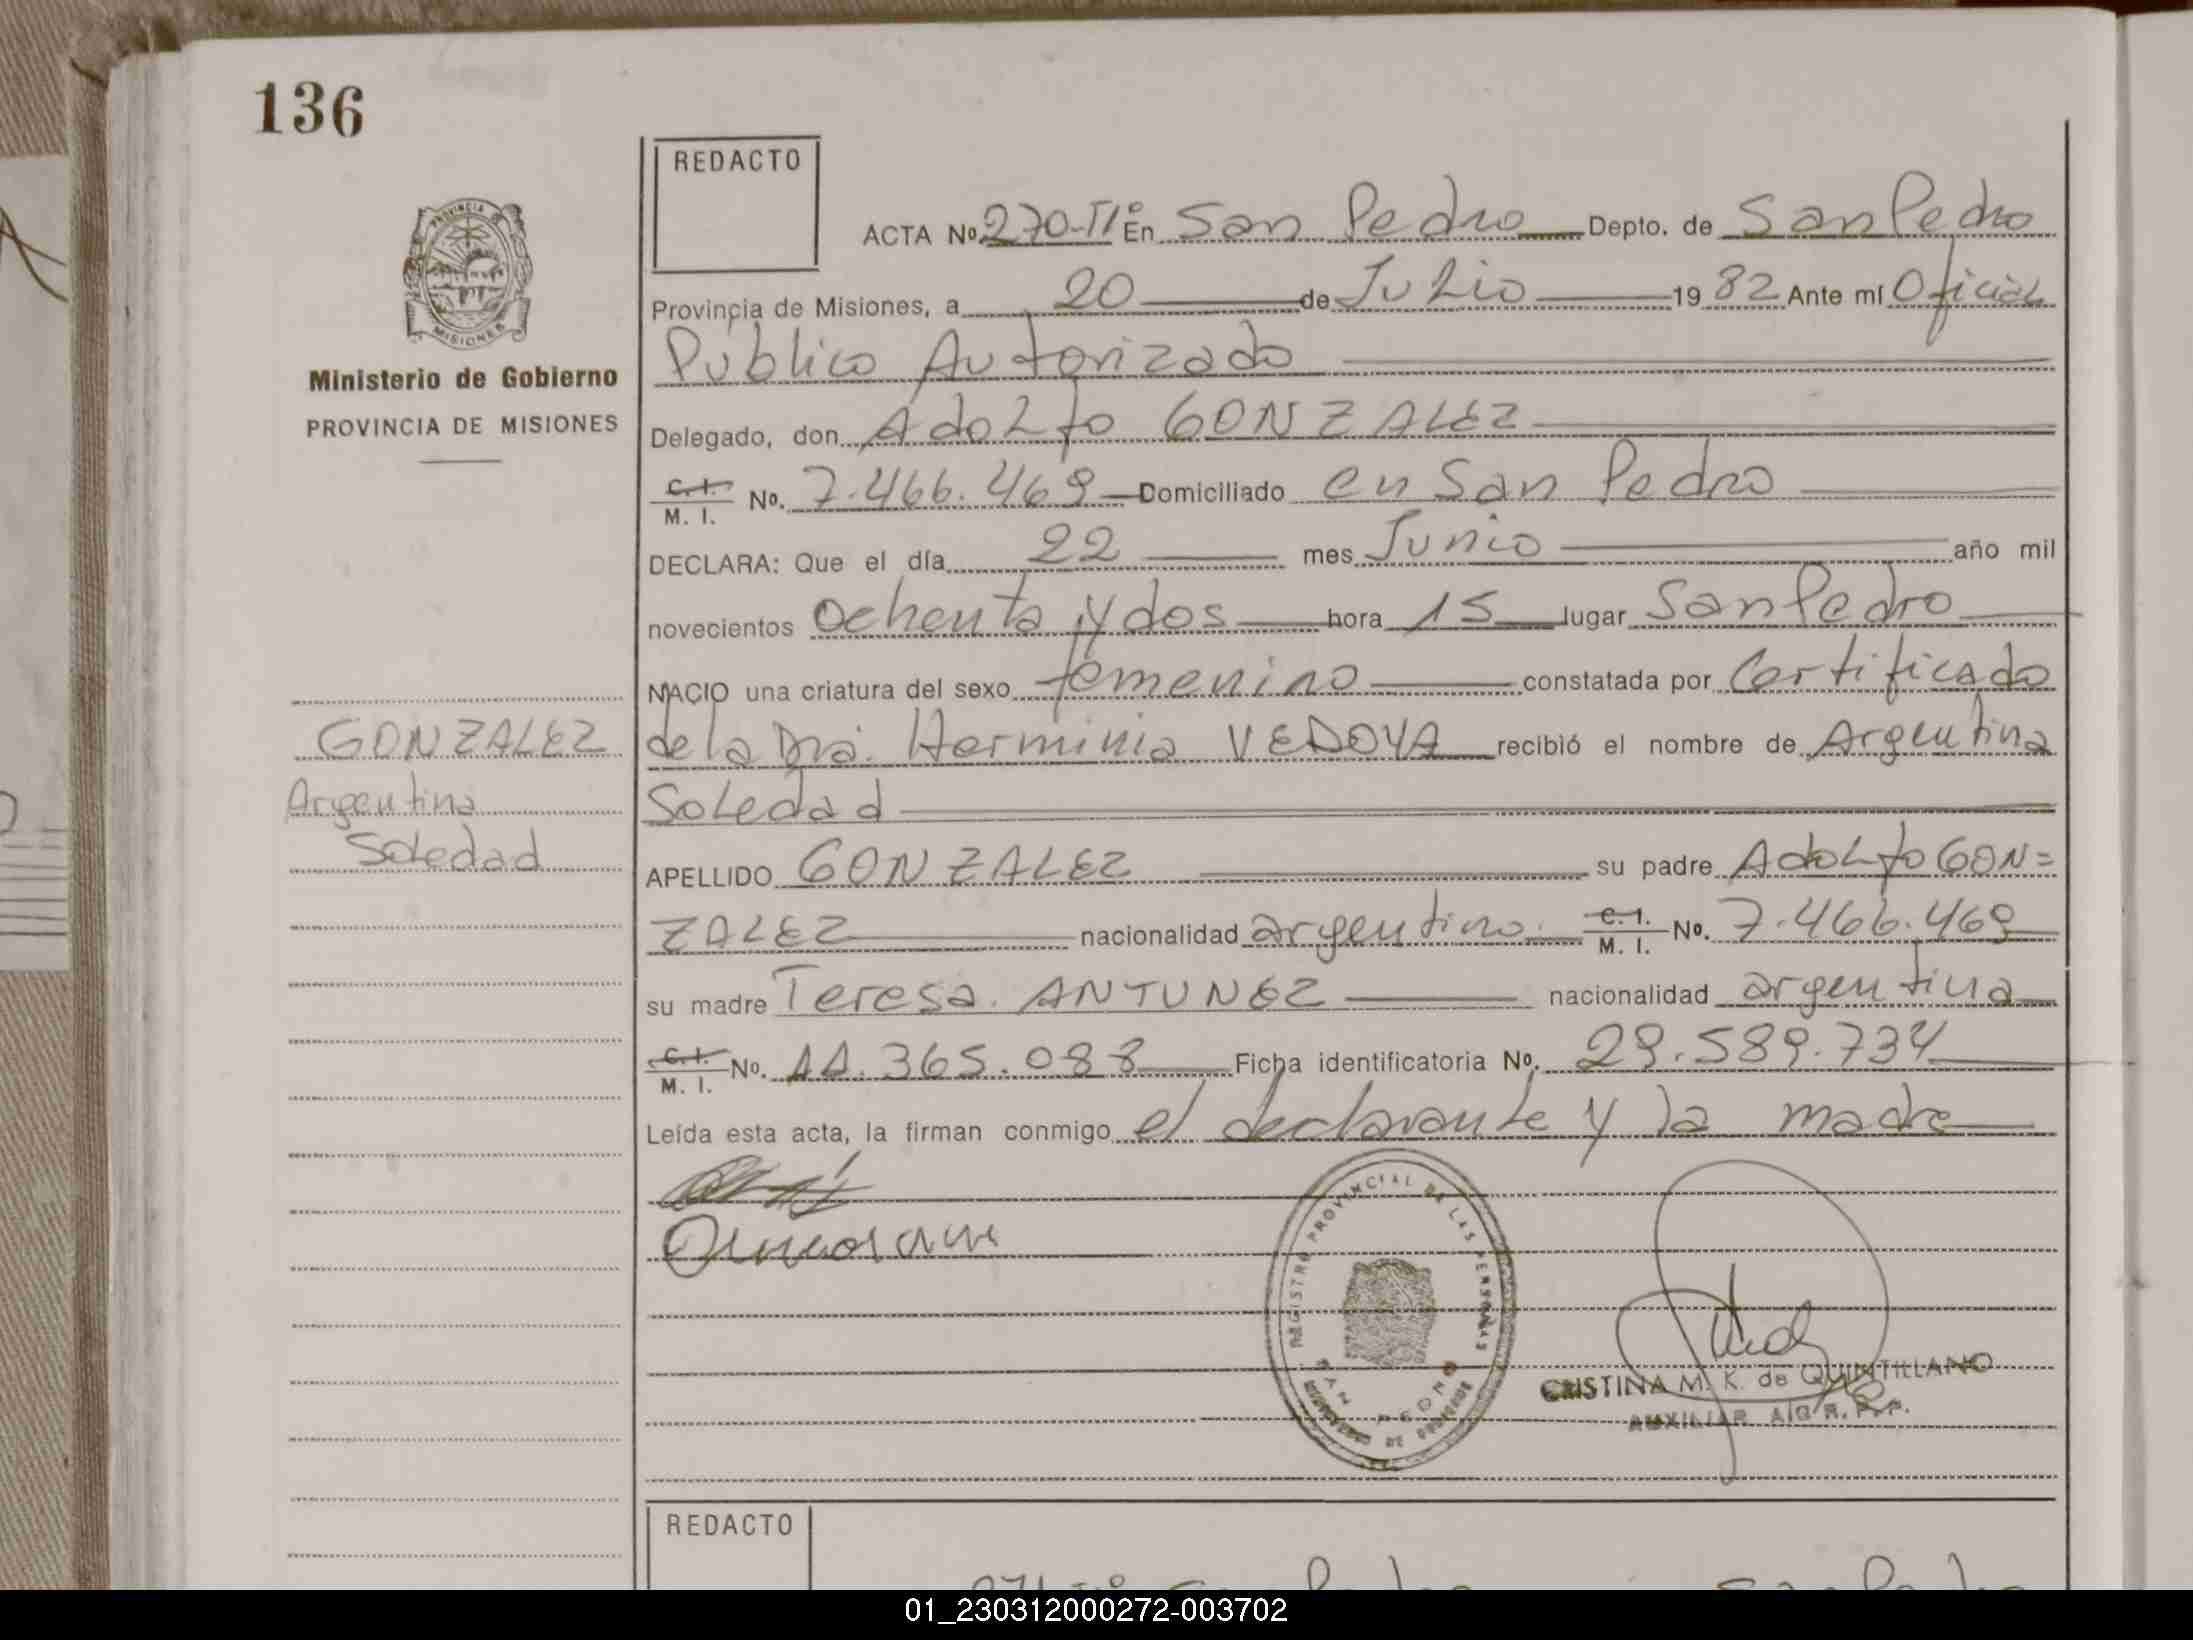 136
REDACTO
ACTA Nº 270-Tº En San Pedro Depto. de San Pedro
PROVINCIA
MISIONES
Provincia de Misiones, a 20 de Julio 1982 Ante mí Oficial
Publico Autorizado
Ministerio de Gobierno
PROVINCIA DE MISIONES
Delegado, don Adolfo GONZALEZ
C. I. M. I. Nº. 7.466.469 Domiciliado en San Pedro
DECLARA: Que el día 22 mes Junio año mil
novecientos Ochenta y dos hora 15 lugar San Pedro
NACIO una criatura del sexo femenino constatada por Certificado
de la Dra. Herminia VEDOYA recibió el nombre de Argentina
Soledad
GONZALEZ
Argentina
Soledad
APELLIDO GONZALEZ su padre Adolfo GON=
ZALEZ nacionalidad argentino. C. I. M. I. Nº. 7.466.469
su madre Teresa. ANTUNEZ nacionalidad argentina
C. I. M. I. Nº. 11.365.088 Ficha identificatoria Nº. 29.589.734
Leída esta acta, la firman conmigo el declarante y la madre
REGISTRO PROVINCIAL DE LAS PERSONAS
SAN PEDRO
CRISTINA M. K. de QUINTILLANO
AUXILIAR A/C R. P. P.
REDACTO
01_230312000272-003702